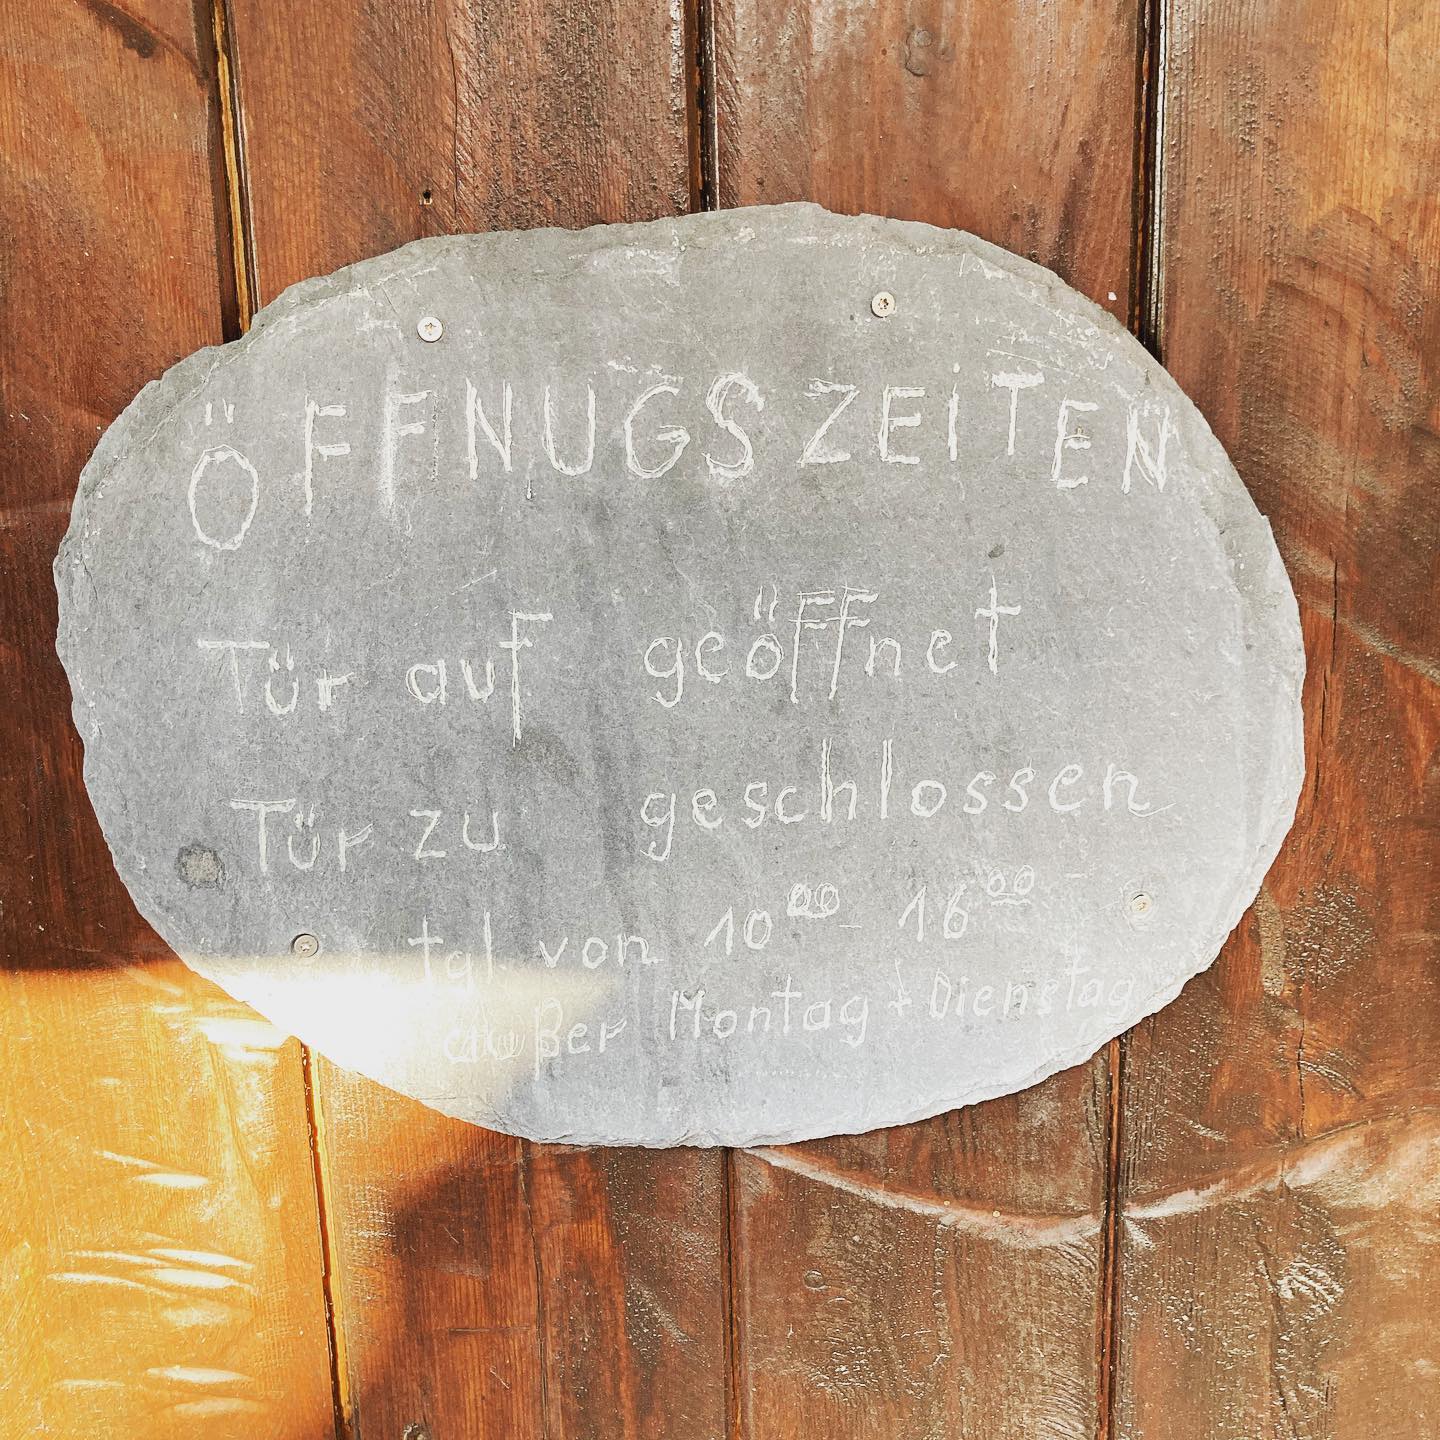 ÖFFNUGSZEiTEN
Tür auf geöffnet
Tür zu geschlossen
tgl. von 10⁰⁰ - 16⁰⁰
außer Montag + Dienstag